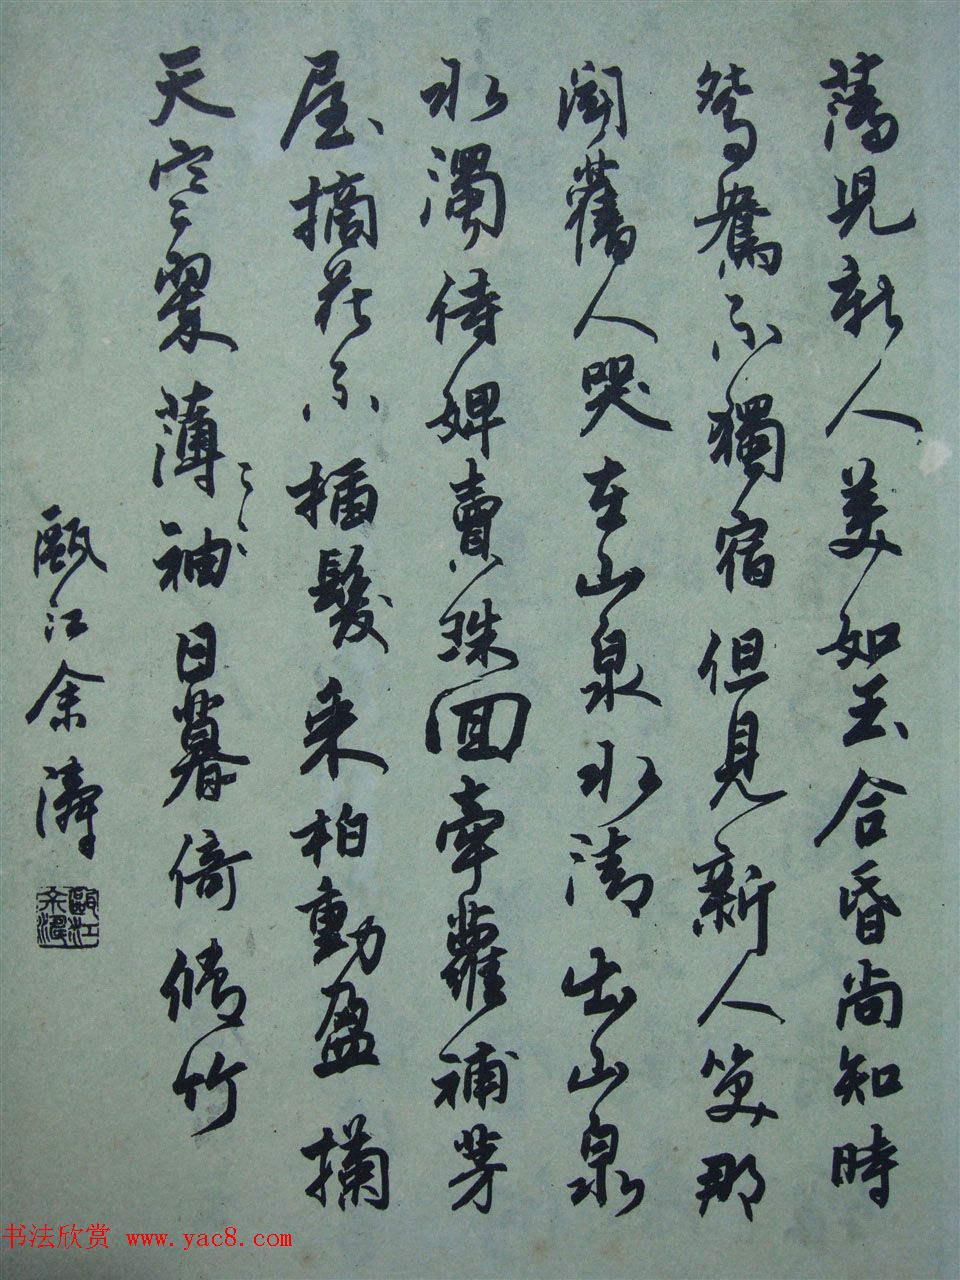 薄兒新人美如玉合昏尚知時
鴛鴦不獨宿但見新人笑那
聞舊人哭在山泉水清出山泉
水濁侍婢賣珠回牽蘿補茅
屋摘花不插髮采柏動盈掬
天寒翠薄袖日暮倚脩竹
甌江余濤
书法欣赏 www.yac8.com